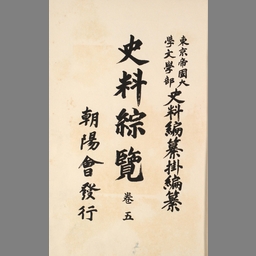 東京帝國大
學文學部史料編纂掛編纂
史料綜覽 卷五
朝陽會發行